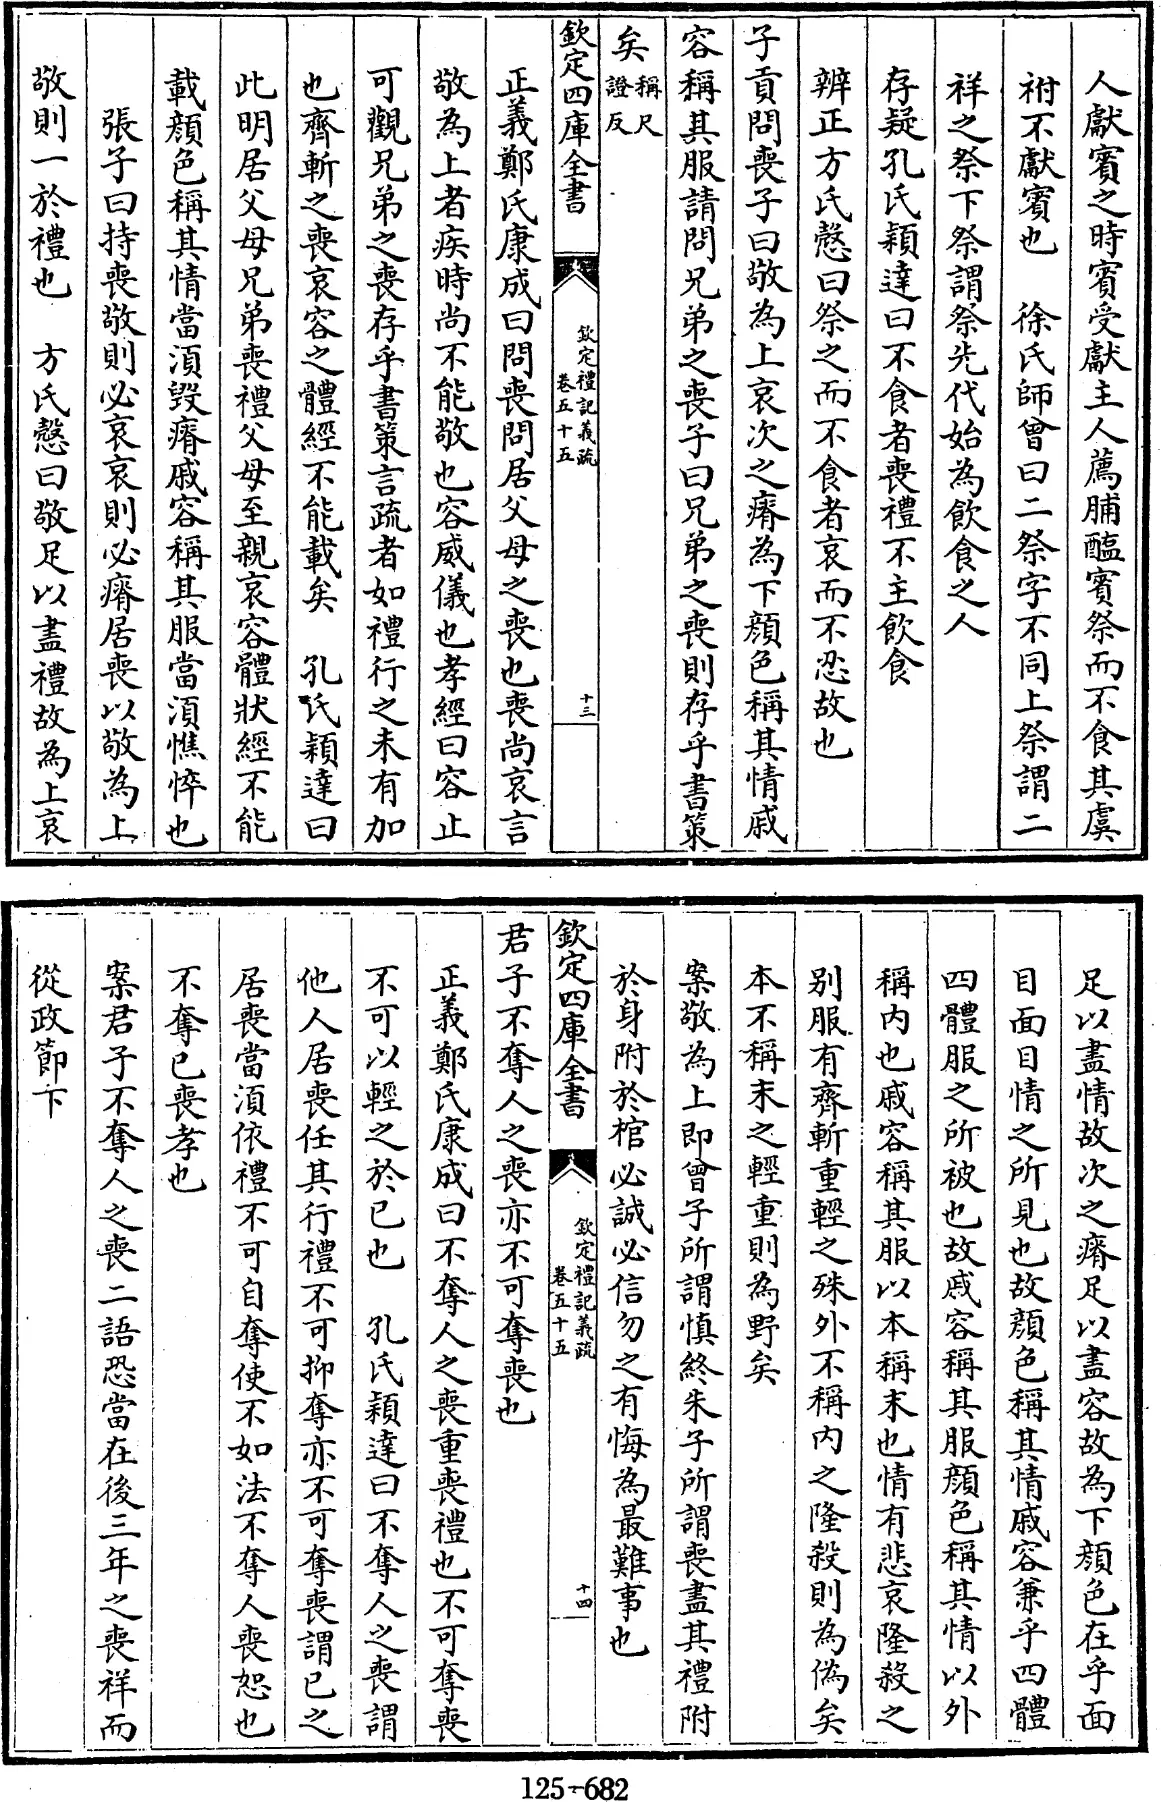 人獻賓之時賓受獻主人薦脯醢賓祭而不食其虞
祔不獻賓也　徐氏師曾曰二祭字不同上祭謂二
祥之祭下祭謂祭先代始為飲食之人
存疑孔氏穎達曰不食者喪禮不主飲食
辨正方氏慤曰祭之而不食者哀而不忍故也
子貢問喪子曰敬為上哀次之瘠為下顔色稱其情戚
容稱其服請問兄弟之喪子曰兄弟之喪則存乎書策
矣稱尺證反
欽定四庫全書
欽定禮記義疏
卷五十五
十三
正義鄭氏康成曰問喪問居父母之喪也喪尚哀言
敬為上者疾時尚不能敬也容威儀也孝經曰容止
可觀兄弟之喪存乎書策言疏者如禮行之未有加
也齊斬之喪哀容之體經不能載矣　孔氏穎達曰
此明居父母兄弟喪禮父母至親哀容體狀經不能
載顔色稱其情當須毀瘠戚容稱其服當須憔悴也
張子曰持喪敬則必哀哀則必瘠居喪以敬為上
敬則一於禮也　方氏慤曰敬足以盡禮故為上哀
足以盡情故次之瘠足以盡容故為下顔色在乎面
目面目情之所見也故顔色稱其情戚容兼乎四體
四體服之所被也故戚容稱其服顔色稱其情以外
稱内也戚容稱其服以本稱末也情有悲哀隆殺之
别服有齊斬重輕之殊外不稱内之隆殺則為偽矣
本不稱末之輕重則為野矣
案敬為上即曾子所謂慎終朱子所謂喪盡其禮附
於身附於棺必誠必信勿之有悔為最難事也
欽定四庫全書
欽定禮記義疏
卷五十五
十四
君子不奪人之喪亦不可奪喪也
正義鄭氏康成曰不奪人之喪重喪禮也不可奪喪
不可以輕之於已也　孔氏穎達曰不奪人之喪謂
他人居喪任其行禮不可抑奪亦不可奪喪謂已之
居喪當須依禮不可自奪使不如法不奪人喪恕也
不奪已喪孝也
案君子不奪人之喪二語恐當在後三年之喪祥而
從政節下
125-682